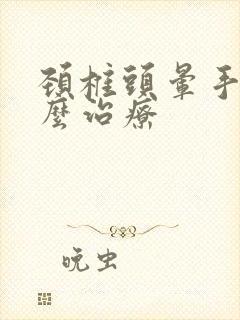 頚椎頭暈手
麼治療
晚虫